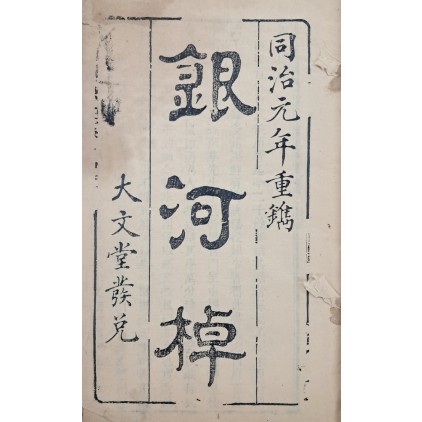 同治元年重鐫
銀河棹
大文堂發兑